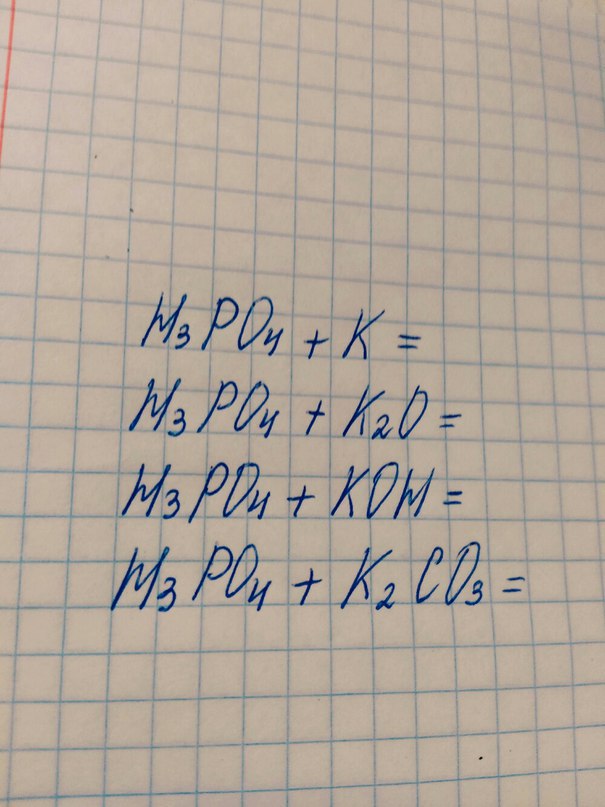 H₃PO₄ + K =
H₃PO₄ + K₂O =
H₃PO₄ + KOH =
H₃PO₄ + K₂CO₃ =